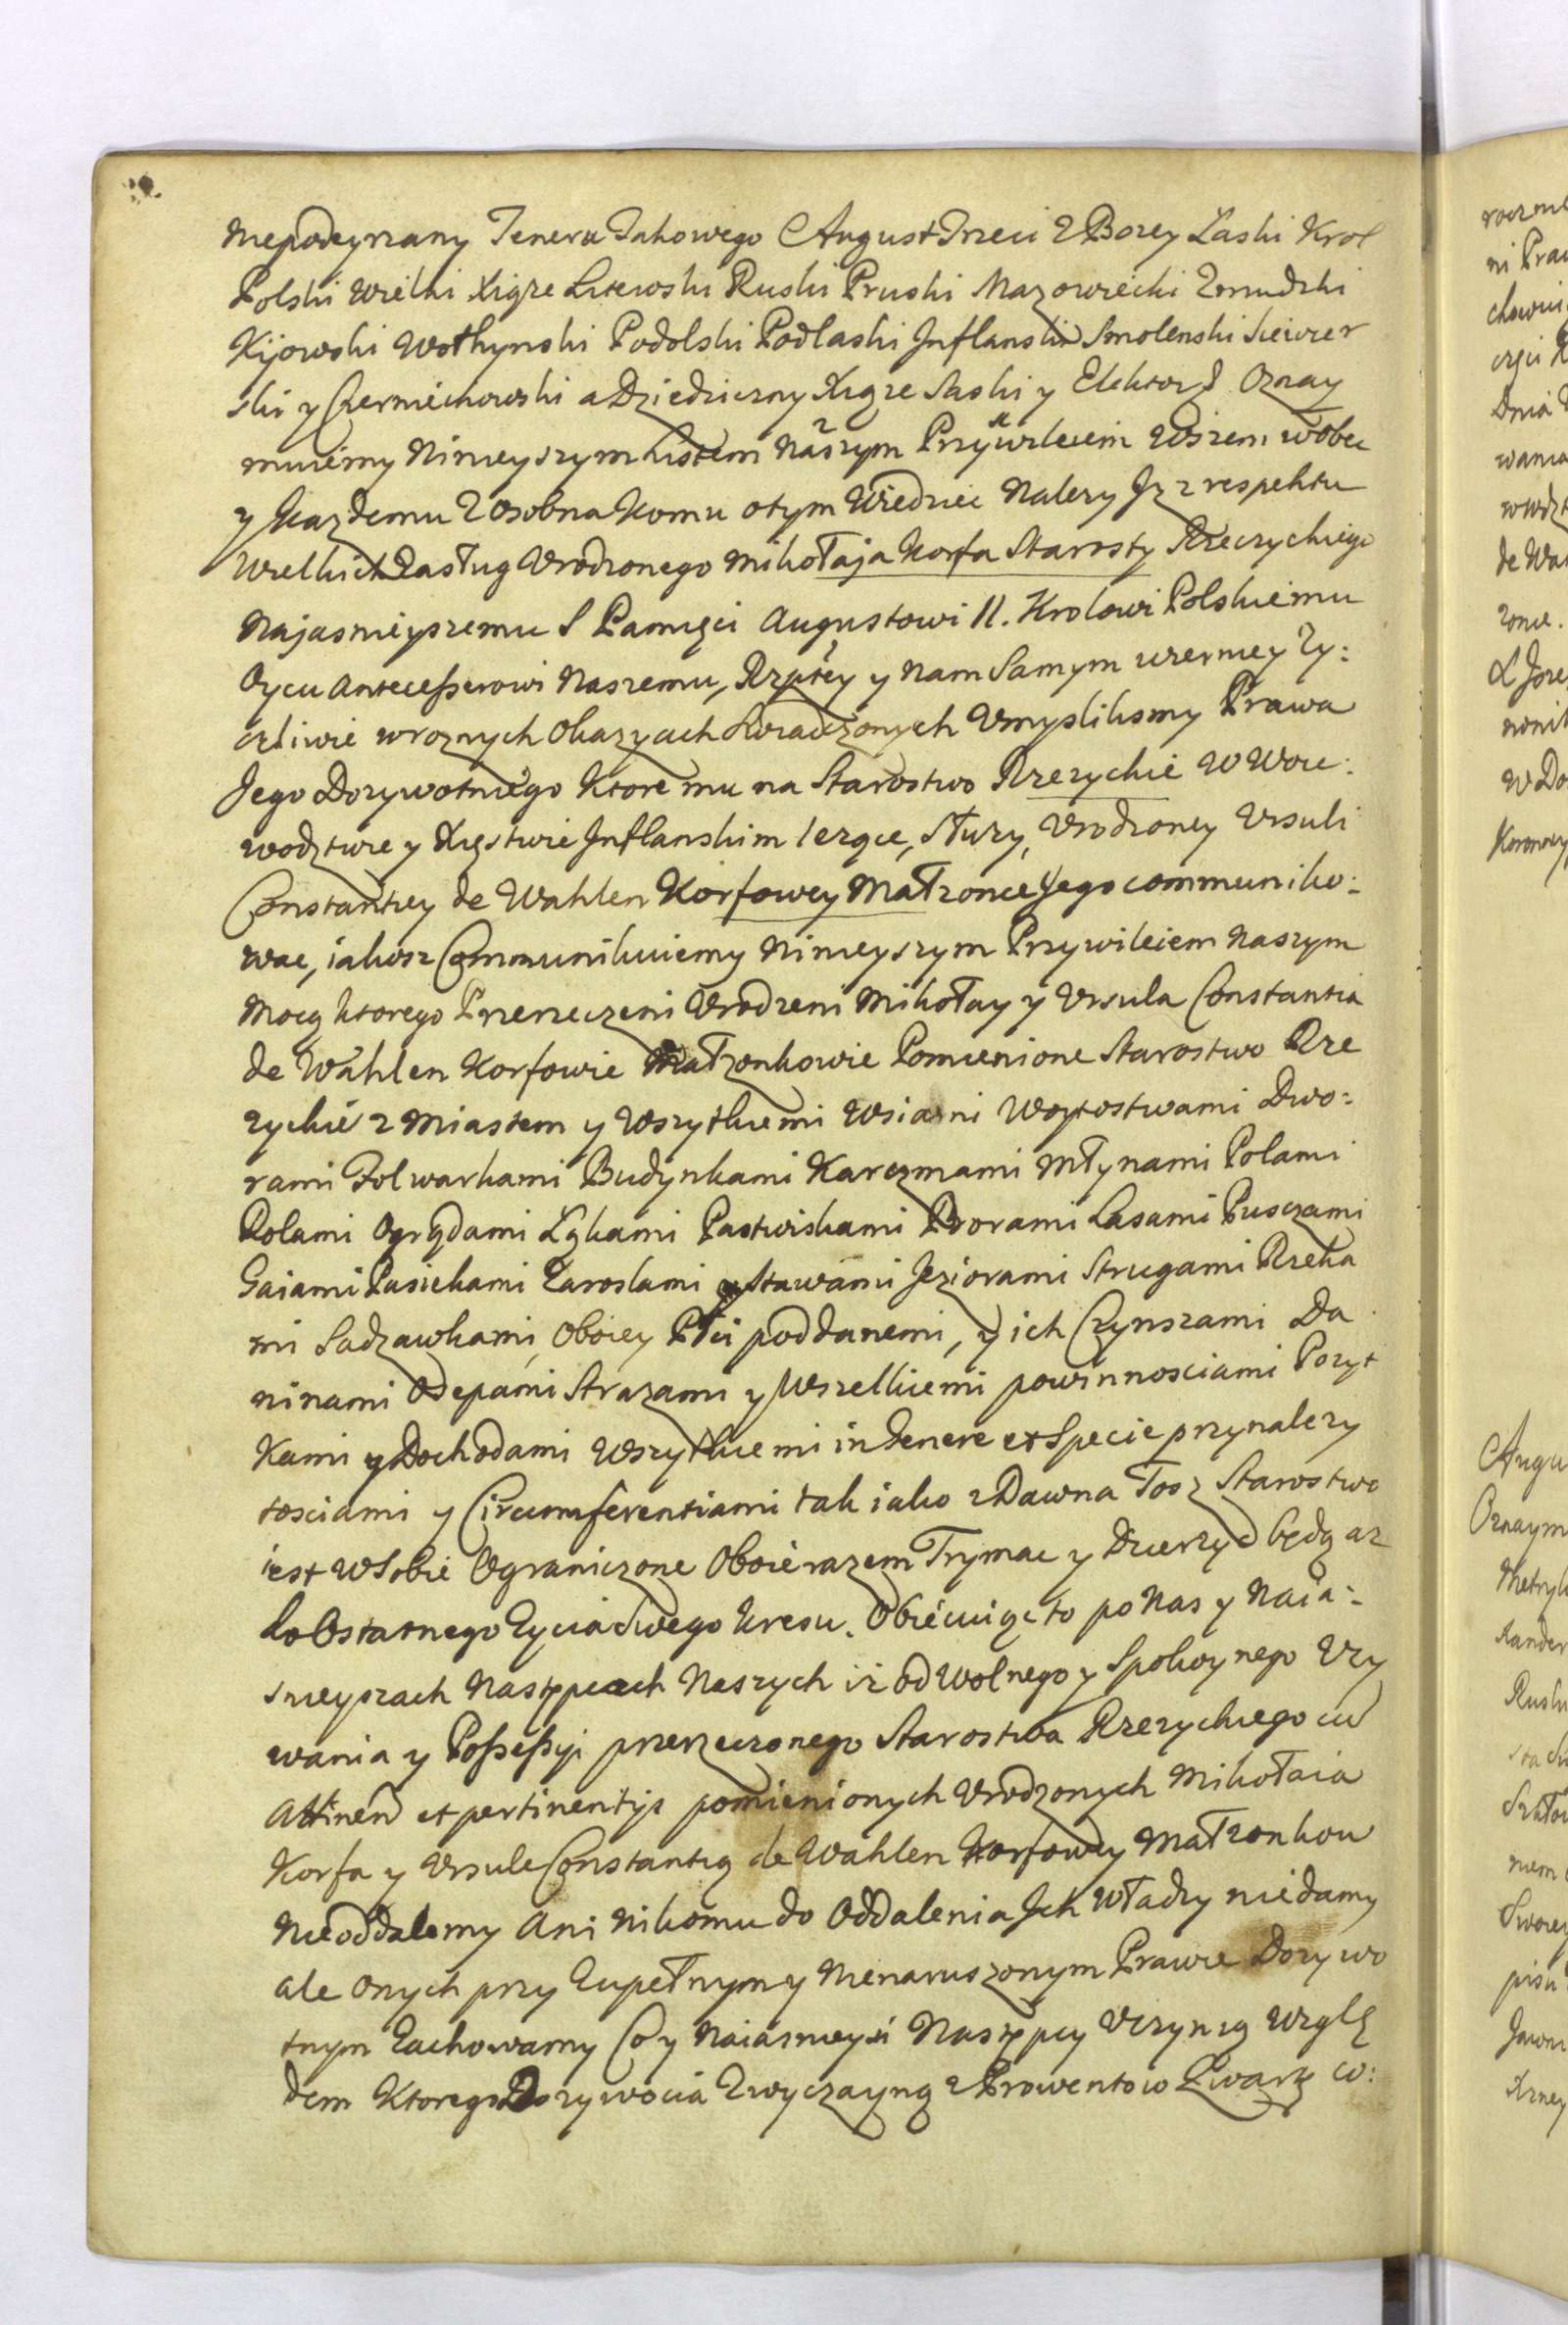 niepodeyrzany Teneru Takowego August Trzeci z Bozey Laski Krol
Polski Wielki Xiąze Litewski Ruski Pruski Mazowiecki Zmudzki
Kijowski Wołhynski Podolski Podlaski Inflanski Smolenski Siewier
ski y Czerniechowski a Dziedziczny Xiąze Saski y Elektor Oznay
muiemy Ninieyszym Listem Naszym Przywileiem Wszem wobec
y Kazdemu Zosobna Komu otym Wiedziec Nalezy Jz z respektu
Wielkich Zasług Vrodzonego Mikołaja Korfa Starosty Rzezyckiego
Najasnieyszemu S Pamięci Augustowi II. Krolowi Polskiemu
Oycu Antecesserowi Naszemu, Rzptey y Nam Samym wierney Zy:
czliwie wroznych Okazyach Swiadczonych Vmyslilismy Prawa
Jego Dozywotniego Ktore mu na Starostwo Rzezyckie W Woie:
wodztwie y Xięstwie Inflanskim lezące, słuzy, Vrodzoney Vrsuli
Constantiey de Wahlen Korfowey Małzonce Jego communiko:
wac, iakosz Communikuiemy Ninieyszym Przywileiem Naszym
Mocą ktorego Przerzeczeni Vrodzeni Mikołay y Vrsula Constantia
de Wahlen Korfowie Małzonkowie Pomienione Starostwo Rze
zyckie z Miastem y Wszytkiemi Wsiami Woytostwami Dwo:
rami Folwarkami Budynkami Karczmami Młynami Polami
Rolami Ogrodami Łąkami Pastwiskami Borami Lasami Pusczami
Gaiami Pasiekami Zaroslami y Stawami Jeziorami Strugami Rzeka
mi Sadzawkami, Oboiey Płci poddanemi, y ich Czynszami Da
ninami Osepami Strazami y Wszelkiemi powinnosciami Pozyt
Kami y Dochodami Wszytkiemi in Genere et Specie przynalezy
tosciami y Circumferentiami tak iako z Dawna Tosz Starostwo
iest W Sobie Ograniczone Oboie razem Trzymac y Dzierzyc będą az
do Ostatnego Zycia Swego Kresu. Obiecuiąc to po Nas y Naia:
snieyszych Następcach Naszych iz od Wolnego y Spokoynego Vzy
wania y Possessyi przerzeczonego Starostwa Rzezyckiego cu
Attinen et pertinentijs pomienionych Vrodzonych Mikołaia
Korfa y Vrsule Constantią de Wahlen Korfowey Małzonkow
Nieoddalemy Ani Nikomu do Oddalenia Jch Władzy niedamy
ale Onych przy Zupełnym y Nienaruszonym Prawie Dozywo
tnym Zachowamy Co y Naiasnieysi Następcy Vczynią Wzglę
dem Ktorego Dozywocia Zwyczayną z Prowentow Kwartę co: